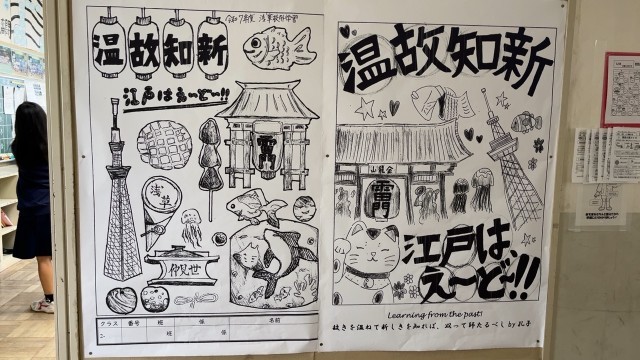 令和7年度 浅草校外学習
温故知新
江戸はえ〜ど!!
雷門
浅草
仲見世
クラス 番号 班 係 名前
2- 班 係
温故知新
山龍金
雷門
江戸は、
え〜ど!!
Learning from the past!
故きを温ねて新しきを知れば、以って師たるべし by 孔子